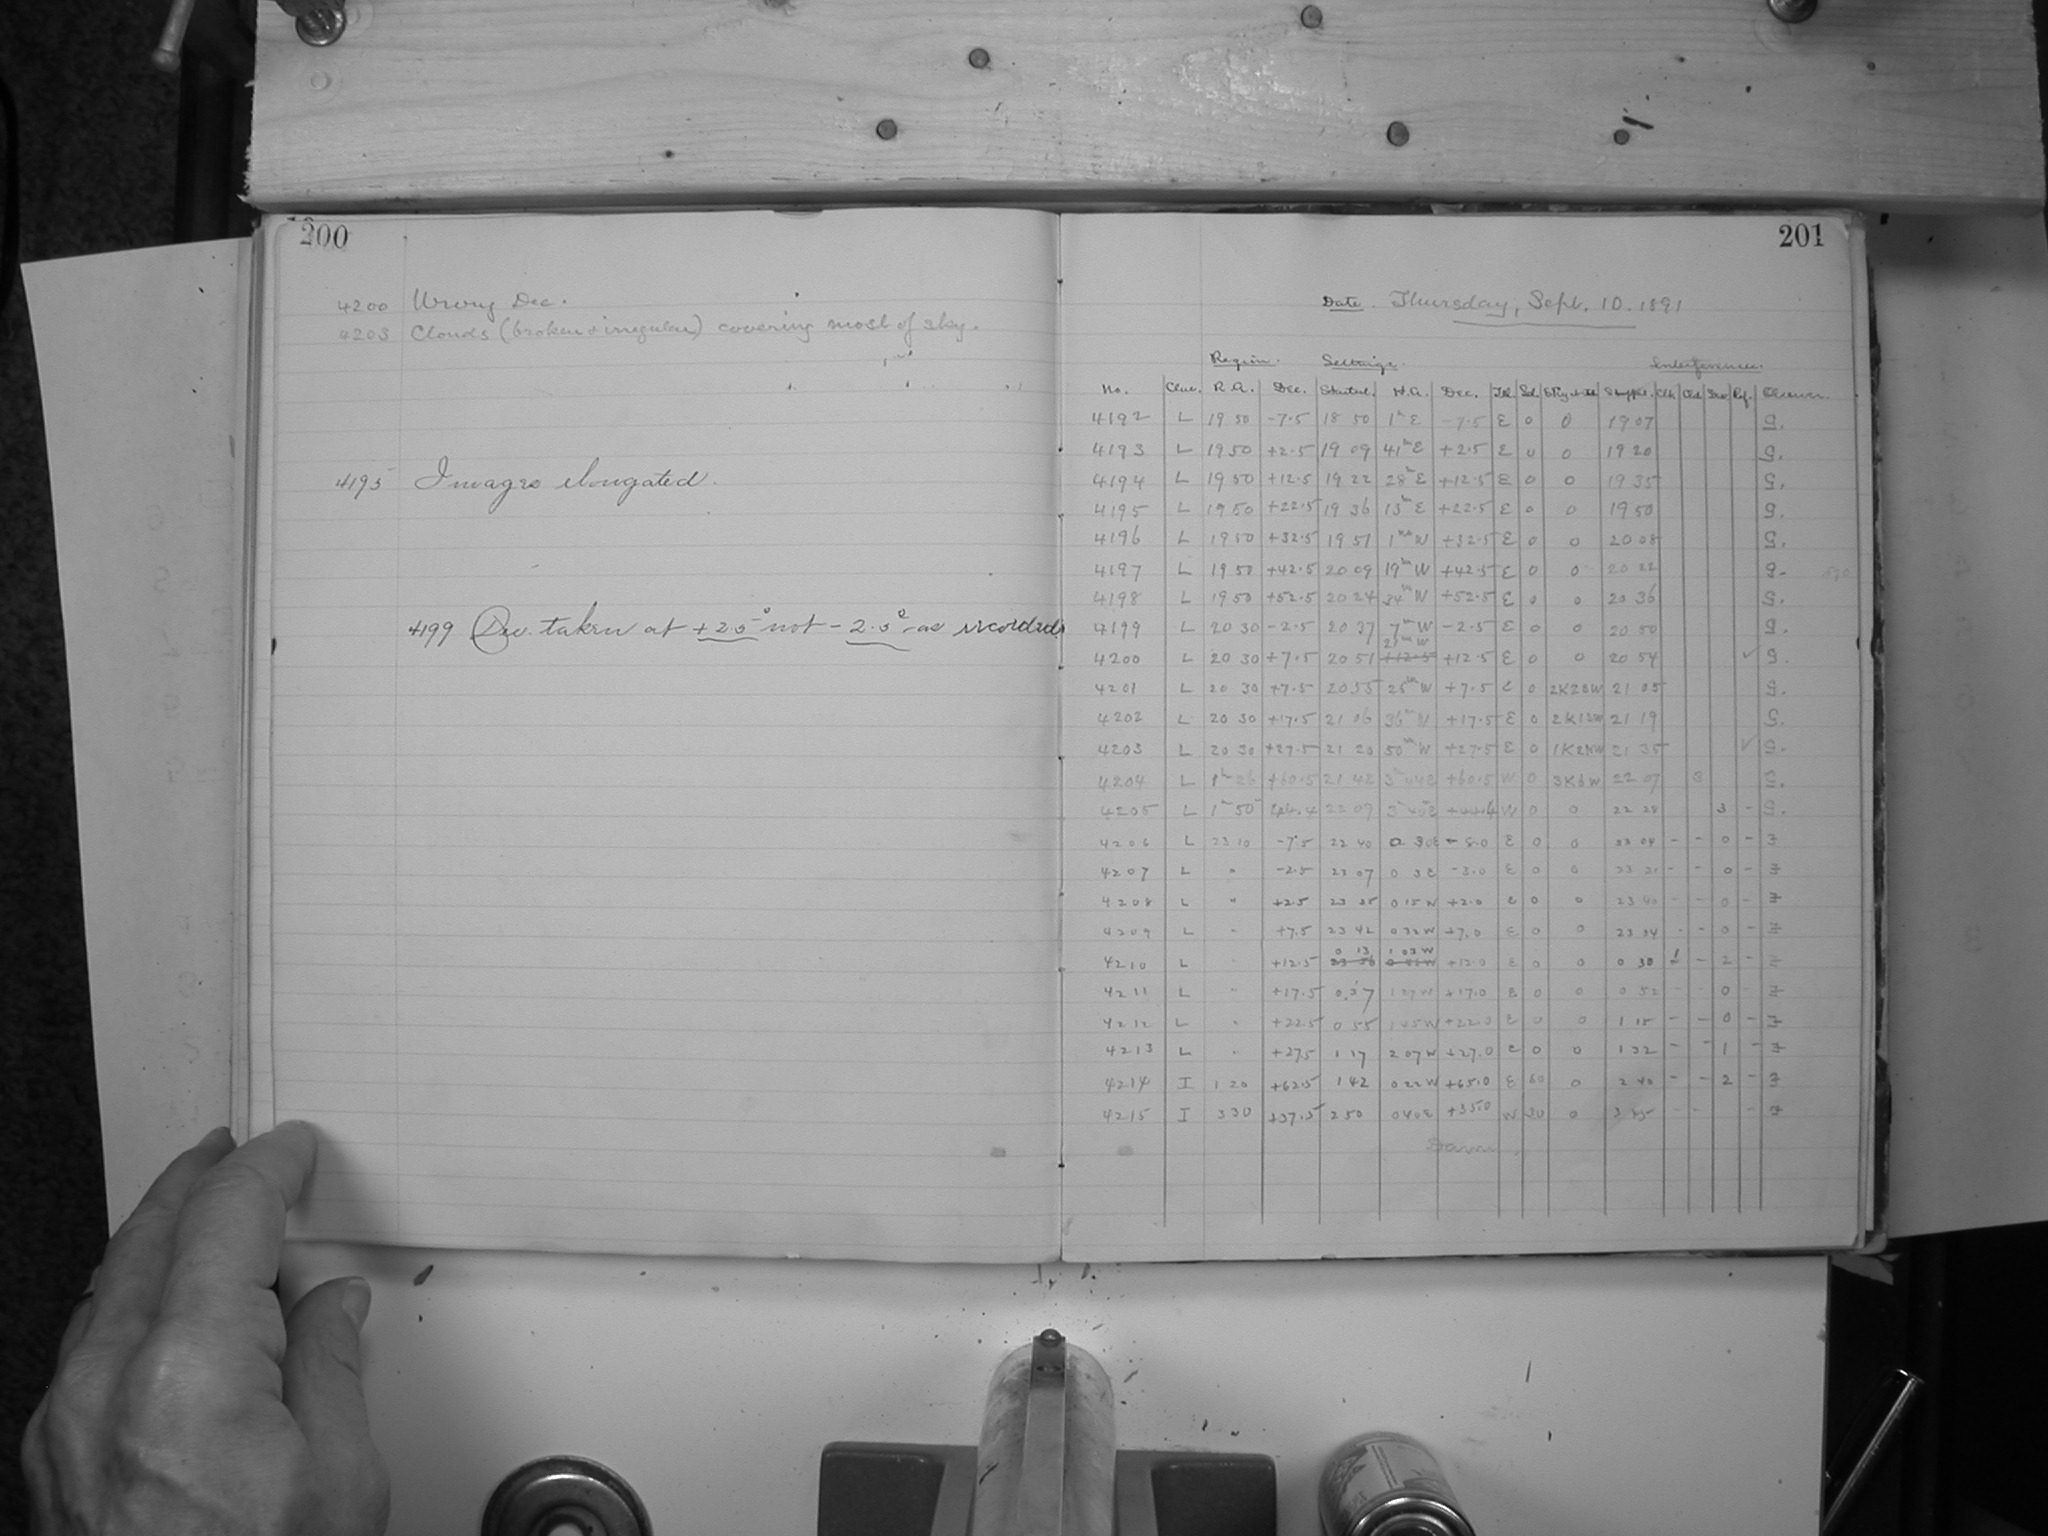 200
4200 Wrong Dec.
4203 Clouds (broken & irregular) covering most of sky.
4195 Images elongated.
4199 Dec. taken at +2.5° not -2.5° as recorded
201
Date. Thursday, Sept. 10. 1891
Region. Settings. Interference.
No. Class. R.A. Dec. Started. H.A. Dec. Tel. Sid. Stopped. Clk Cld Ref. Observer.
4192 L 19 50 -7.5 18 50 1h E -7.5 E 0 0 19 07 S.
4193 L 19 50 +2.5 19 09 41m E +2.5 E 0 0 19 20 S.
4194 L 19 50 +12.5 19 22 28m E +12.5 E 0 0 19 35 S.
4195 L 19 50 +22.5 19 36 13m E +22.5 E 0 0 19 50 S.
4196 L 19 50 +32.5 19 51 1m W +32.5 E 0 0 20 08 S.
4197 L 19 50 +42.5 20 09 19m W +42.5 E 0 0 20 22 S.
4198 L 19 50 +52.5 20 24 34m W +52.5 E 0 0 20 36 S.
4199 L 20 30 -2.5 20 37 7m W -2.5 E 0 0 20 50 S.
21m W
4200 L 20 30 +7.5 20 51 +12.5 +12.5 E 0 0 20 54 ✓ S.
4201 L 20 30 +7.5 20 55 25m W +7.5 E 0 2K2SW 21 05 S.
4202 L 20 30 +17.5 21 06 36m W +17.5 E 0 2K1SW 21 19 S.
4203 L 20 30 +27.5 21 20 50m W +27.5 E 0 1K2NW 21 35 ✓ S.
4204 L 1h 26 +60.5 21 42 +60.5 W 0 22 07 3 S.
4205 L 1h 50 44.4 22 07 +44.4 W 0 0 22 28 3 - S.
4206 L 23 10 -7.5 22 40 0 30E -8.0 E 0 0 23 04 - - 0 - F
4207 L " -2.5 23 07 0 3E -3.0 E 0 0 23 21 - - 0 - F
4208 L " +2.5 23 25 0 15W +2.0 E 0 0 23 40 - - 0 - F
4209 L " +7.5 23 42 0 32W +7.0 E 0 0 23 54 - - 0 - F
0 13 1 03W
4210 L " +12.5 23 56 0 46W +12.0 E 0 0 0 30 1 - 2 - F
4211 L " +17.5 0 37 1 27W +17.0 E 0 0 0 52 - - 0 - F
4212 L " +22.5 0 55 1 45W +22.0 E 0 0 1 15 - - 0 - F
4213 L " +27.5 1 17 2 07W +27.0 E 0 0 1 32 - - 1 - F
4214 I 1 20 +62.5 1 42 0 22W +65.0 E 60 0 2 40 - - 2 - F
4215 I 3 30 +37.5 2 50 0 40E +35.0 W 0 - - - F
Dawn.